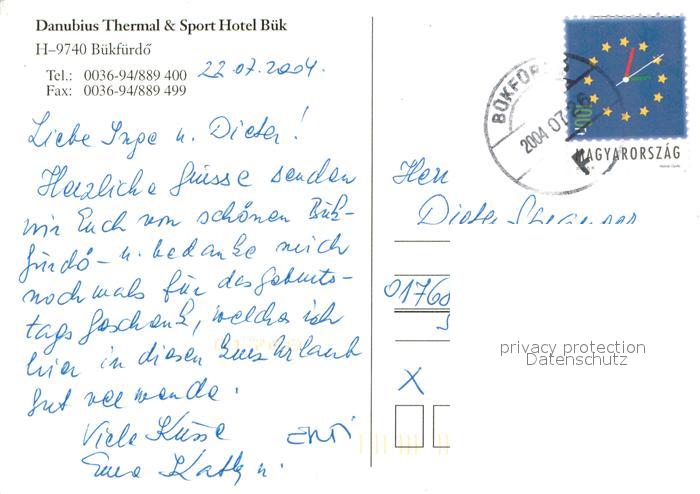 Danubius Thermal & Sport Hotel Bük
H–9740 Bükfürdő
Tel.: 0036-94/889 400
Fax: 0036-94/889 499
22.07.2004.
Liebe Inge u. Dieter!
Herzliche Grüsse senden
wir Euch von schönen Bük-
fürdő – u. bedanke mich
nochmals für das Geburts-
tags Geschenk, welches ich
hier in diesen Kurzurlaub
gut verwende.
Viele Küsse
Eure Kathy u.
BÜKFÜR
2004 07
MAGYARORSZÁG
Herr
Dieter
0176
X
privacy protection
Datenschutz